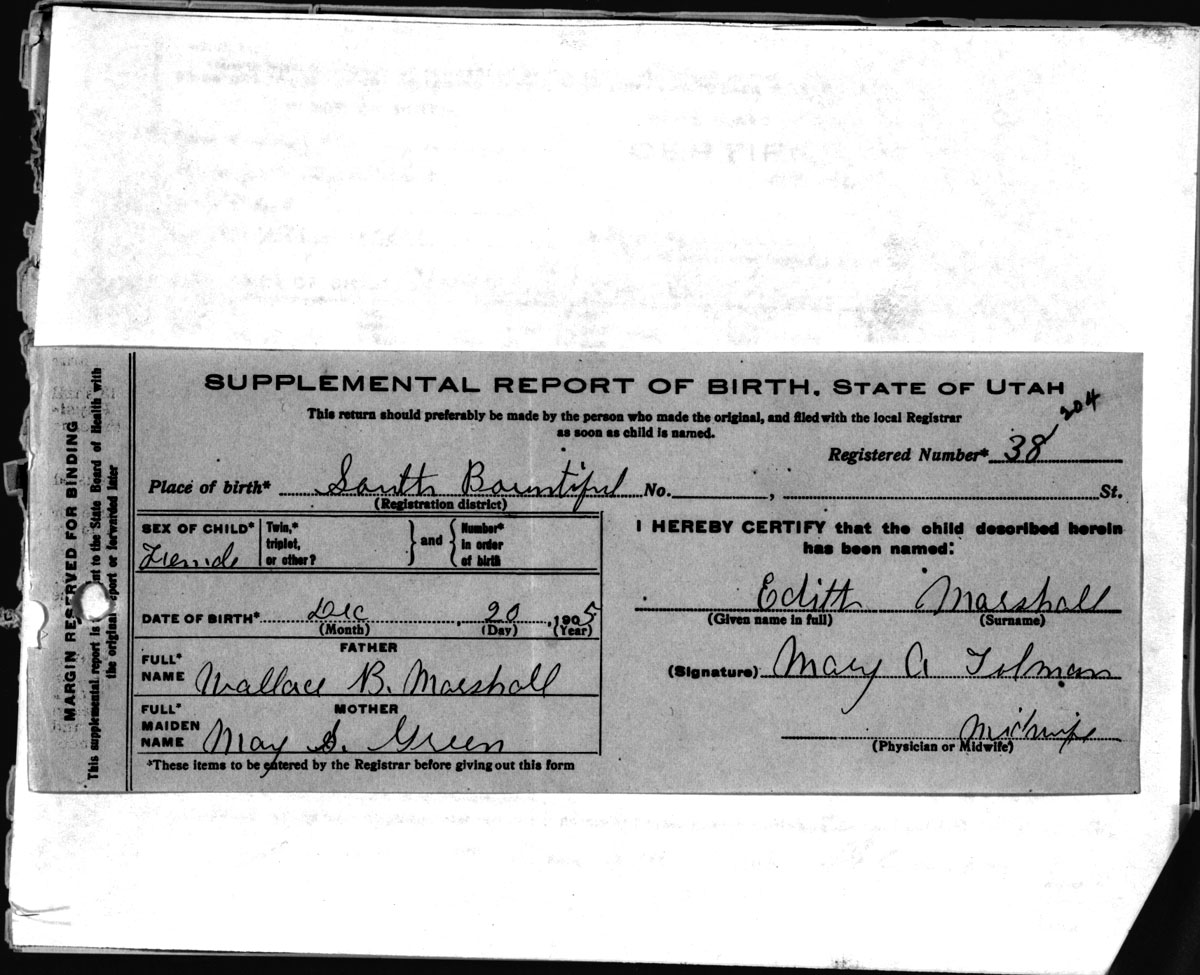 SUPPLEMENTAL REPORT OF BIRTH, STATE OF UTAH
This return should preferably be made by the person who made the original, and filed with the local Registrar
as soon as child is named.
204
Registered Number* 38
Place of birth* South Bountiful No. , St.
(Registration district)
SEX OF CHILD* Female
Twin,* triplet, or other? } and { Number* in order of birth
DATE OF BIRTH* Dec 20, 1905
(Month) (Day) (Year)
FATHER
FULL* NAME Wallace B. Marshall
MOTHER
FULL* MAIDEN NAME May S. Green
*These items to be entered by the Registrar before giving out this form
I HEREBY CERTIFY that the child described herein
has been named:
Edith Marshall
(Given name in full) (Surname)
(Signature) Mary A Tolman
Midwife
(Physician or Midwife)
MARGIN RESERVED FOR BINDING
This supplemental report is to the State Board of Health with
the original report or forwarded later